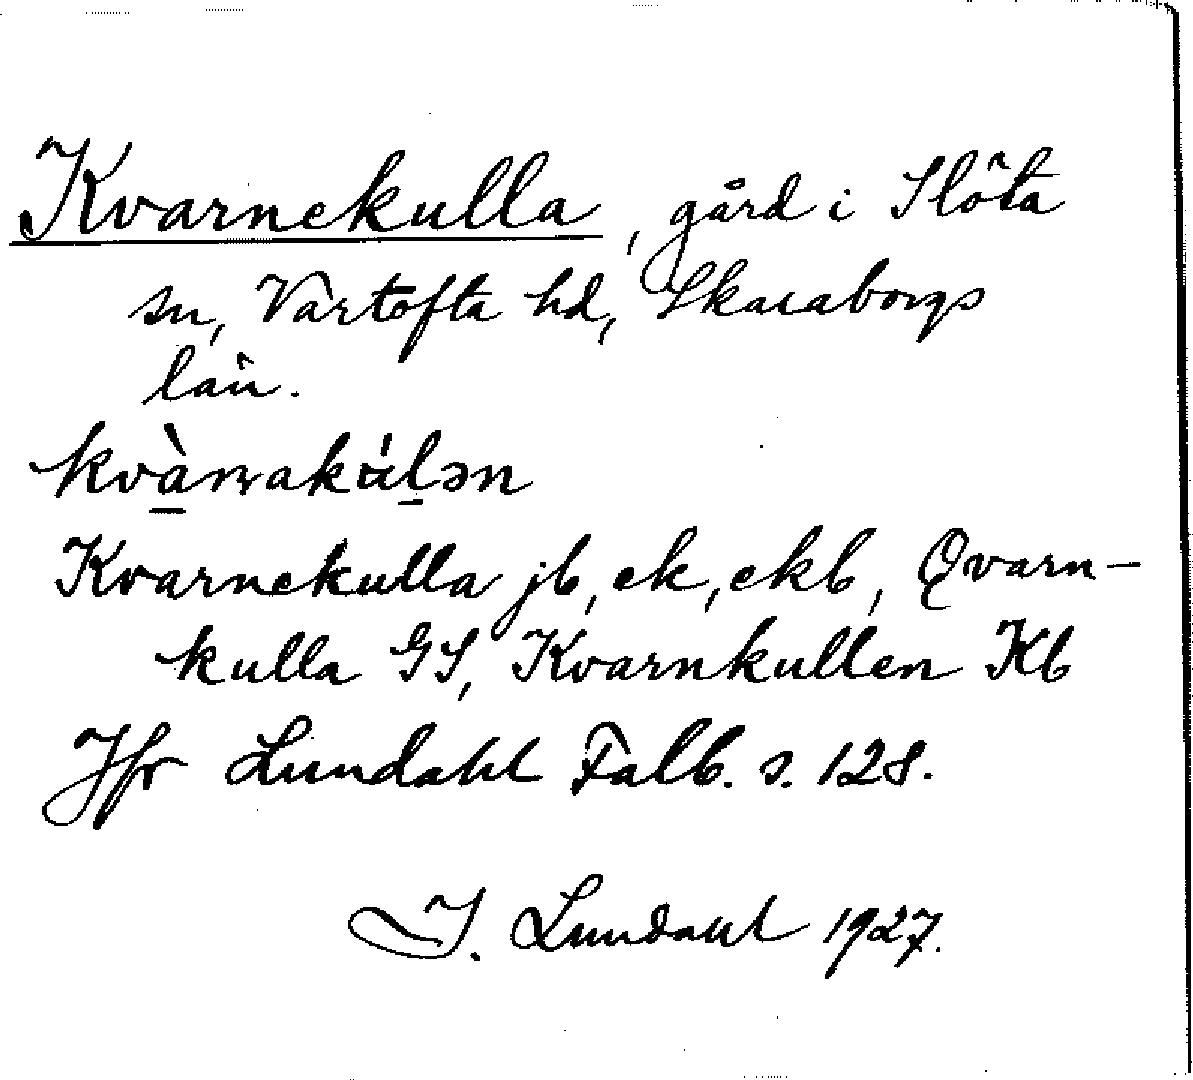 Kvarnekulla, gård i Slöta
sn, Vartofta hd, Skaraborgs
län.
kvàṇakúlən
Kvarnekulla jb, ek, ekb, Qvarn-
kulla GS, Kvarnkullen Kb
Jfr Lundahl Falb. s. 128.
I. Lundahl 1927.